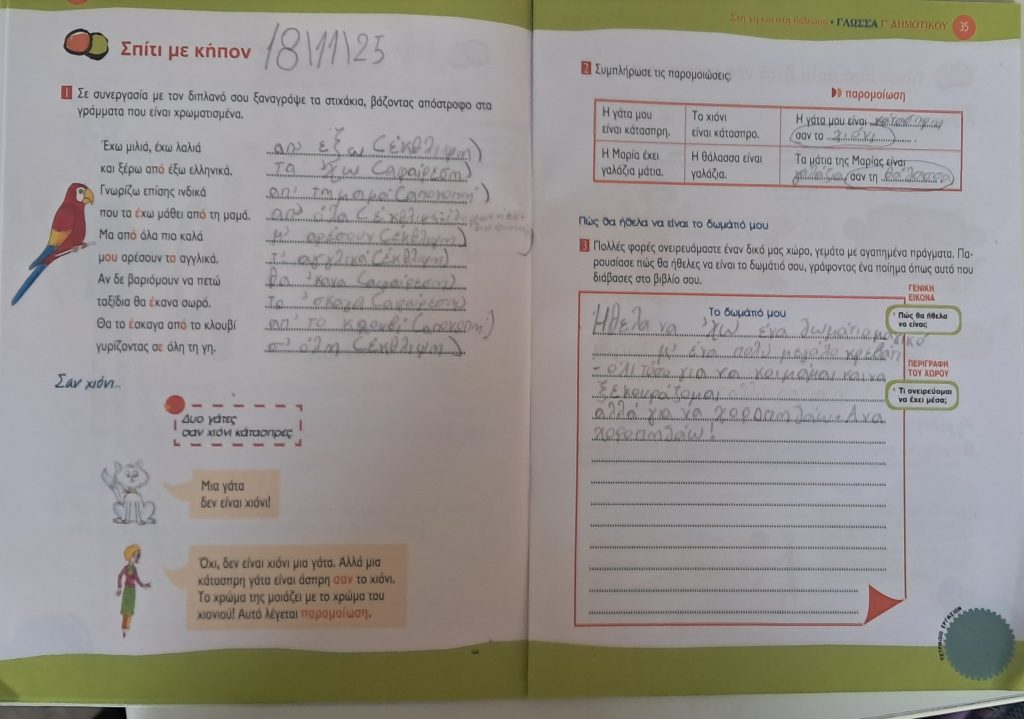 Σπίτι με κήπον 18\11\25
1 Σε συνεργασία με τον διπλανό σου ξαναγράψε τα στιχάκια, βάζοντας απόστροφο στα
γράμματα που είναι χρωματισμένα.
Έχω μιλιά, έχω λαλιά απ' έξω (έκθλιψη)
και ξέρω από έξω ελληνικά. Τα 'χω (αφαίρεση)
Γνωρίζω επίσης ινδικά απ' τη μαμά (αποκοπή)
που τα έχω μάθει από τη μαμά. απ' όλα (έκθλιψη)
Μα από όλα πιο καλά μ' αρέσουν (έκθλιψη)
μου αρέσουν τα αγγλικά. τ' αγγλικά (έκθλιψη)
Αν δε βαριόμουν να πετώ θα 'κανα (αφαίρεση)
ταξίδια θα έκανα σωρό. το 'σκαγα (αφαίρεση)
Θα το έσκαγα από το κλουβί απ' το κλουβί (αποκοπή)
γυρίζοντας σε όλη τη γη. σ' όλη (έκθλιψη)
Σαν χιόνι...
Δυο γάτες
σαν χιόνι κάτασπρες
Μια γάτα
δεν είναι χιόνι!
Όχι, δεν είναι χιόνι μια γάτα. Αλλά μια
κάτασπρη γάτα είναι άσπρη σαν το χιόνι.
Το χρώμα της μοιάζει με το χρώμα του
χιονιού! Αυτό λέγεται παρομοίωση.
Στη γη και στη θάλασσα • ΓΛΩΣΣΑ Γ' ΔΗΜΟΤΙΚΟΥ 35
2 Συμπλήρωσε τις παρομοιώσεις:
παρομοίωση
Η γάτα μου είναι κάτασπρη. Το χιόνι είναι κάτασπρο. Η γάτα μου είναι κάτασπρη
σαν το χιόνι.
Η Μαρία έχει γαλάζια μάτια. Η θάλασσα είναι γαλάζια. Τα μάτια της Μαρίας είναι
γαλάζια σαν τη θάλασσα
Πώς θα ήθελα να είναι το δωμάτιό μου
3 Πολλές φορές ονειρευόμαστε έναν δικό μας χώρο, γεμάτο με αγαπημένα πράγματα. Πα-
ρουσίασε πώς θα ήθελες να είναι το δωμάτιό σου, γράφοντας ένα ποίημα όπως αυτό που
διάβασες στο βιβλίο σου.
ΓΕΝΙΚΗ
ΕΙΚΟΝΑ
Το δωμάτιό μου
Πώς θα ήθελα
να είναι;
Ήθελα να 'χω ένα δωμάτιο μαγικό
μ' ένα πολύ μεγάλο κρεβάτι
ΠΕΡΙΓΡΑΦΗ
ΤΟΥ ΧΩΡΟΥ
- όχι τόσο για να κοιμάμαι και να
Τι ονειρεύομαι
να έχει μέσα;
ξεκουράζομαι
αλλά για να χοροπηδάω. Α να
χοροπηδάω!
ΤΕΤΡΑΔΙΟ ΕΡΓΑΣΙΩΝ